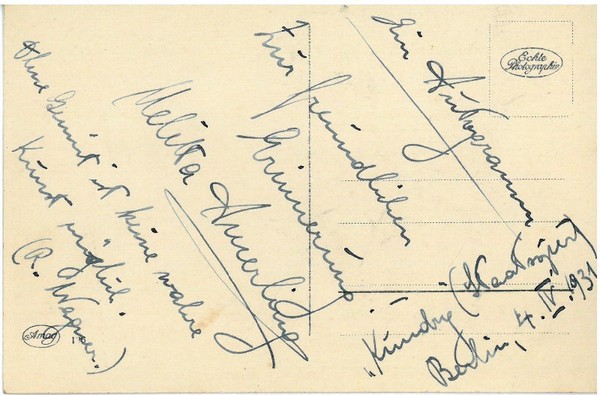 Echte
Photographie
Ein Autogramm
Zur
freundlichen
Erinnerung
Melitta Amerling
Ohne ist keine wahre
Kunst möglich."
(R. Wagner.)
„Kundry (Staatsoper)
Berlin, 4. IV. 1931
Amag